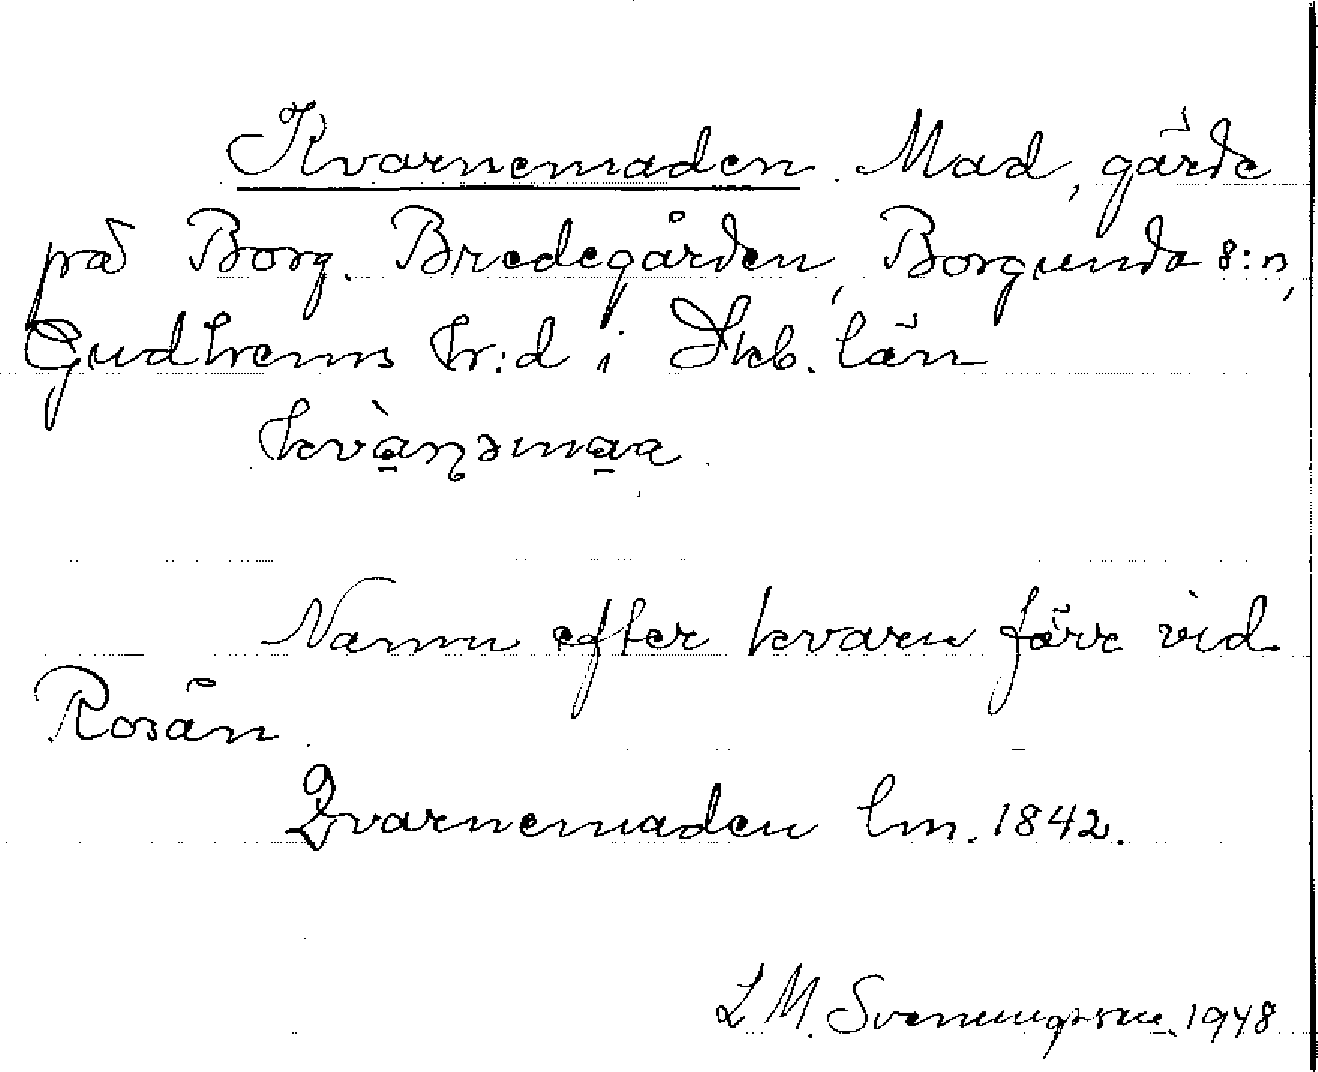 Kvarnemaden. Mad, gärde
på Borg. Bredegården, Borgunda s:n,
Gudhems hr:d i Skb. län
kvàɳəmaa.
Namn efter kvarn förr vid
Rosån.
Qvarnemaden lm. 1842.
L M. Svenungsson. 1948